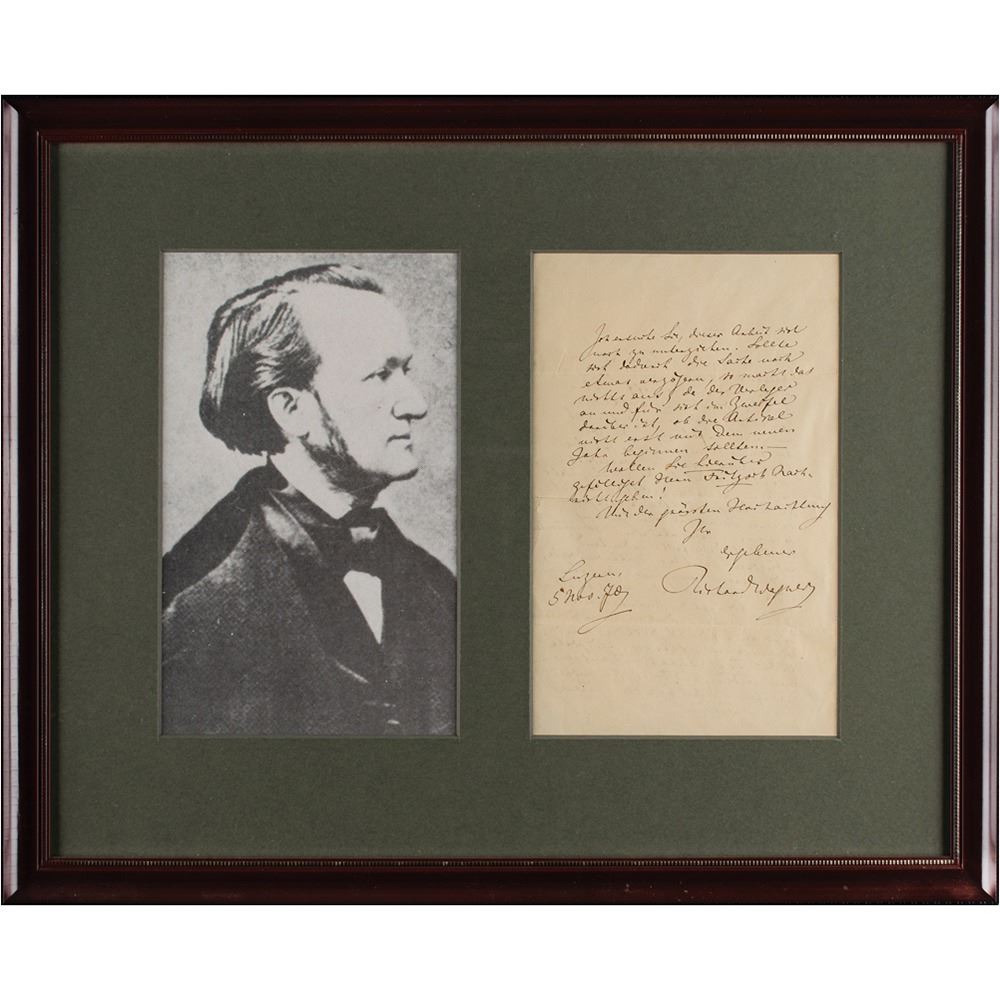 Ich ersuche Sie, dieser Arbeit sich
noch zu unterziehen. Sollte
sich dadurch die Sache noch
etwas verzögern, so macht das
nichts aus, da der Verleger
an und für sich im Zweifel
darüber ist, ob die Artikel
nicht erst mit dem neuen
Jahr beginnen sollten.
Wollen Sie hierüber
gefälligst Herrn Fritzsch Nach-
richt geben!
Mit der grössten Hochachtung
Ihr
ergebener
Luzern,
5 Nov. 70
Richard Wagner